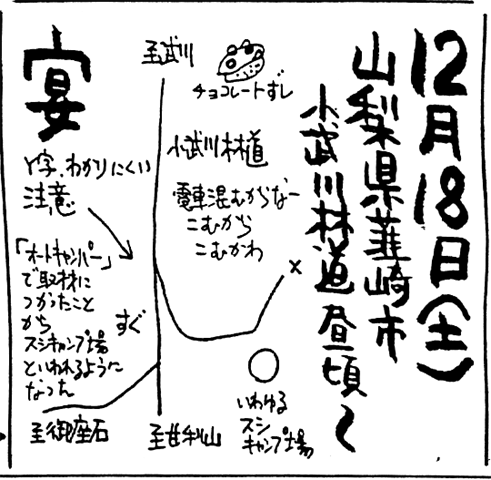 12月18日(土)
山梨県韮崎市
小武川林道 昼頃〜
宴
至武川
チョコレートずし
小武川林道
Y字、わかりにくい
注意
電車混むがなー
こむから
こむかわ
「オートキャンパー」
で取材に
つかったこと
から
スシキャンプ場
といわれるように
なった
すぐ
x
いわゆる
スシ
キャンプ場
至御座石
至甘利山